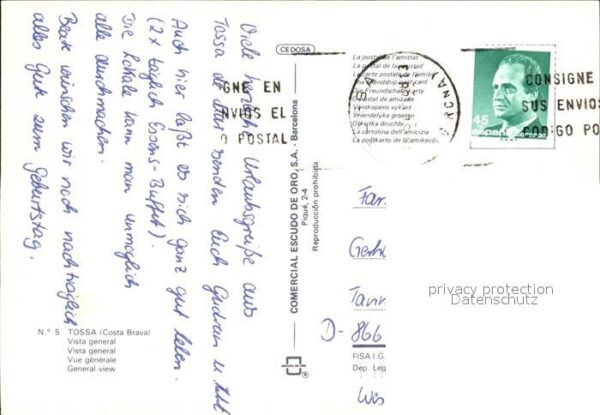 Viele herzliche Urlaubsgrüße aus
Tossa de Mar senden Euch Gudrun u.
Auch hier läßt es sich ganz gut leben.
(2x täglich Essens-Buffet).
Die Lokale kann man unmöglich
alle durchmachen.
Beate wünschen wir noch nachträglich
alles Gute zum Geburtstag.
N.° 5 TOSSA (Costa Brava)
Vista general
Vista general
Vue générale
General view
CEDOSA
COMERCIAL ESCUDO DE ORO, S.A. - Barcelona
Piqué, 2-4
Reproducción prohibida
FISA I.G.
Dep. Leg
La postal de l'amistat
La postal de la amistad
La carte postale de l'amitié
The friendship card
Die Freundschaftskarte
O postal de amizade
Venskapens vykort
Vriendelijke groeten
La cartolina dell'amicizia
La postkarto de la amikeco
GNE EN
NVIOS EL
O POSTAL
CONSIGNE
SUS ENVIOS
CODIGO PO
45
españa
Fam.
Gerh
Tann
D-866
Wes
privacy protection
Datenschutz